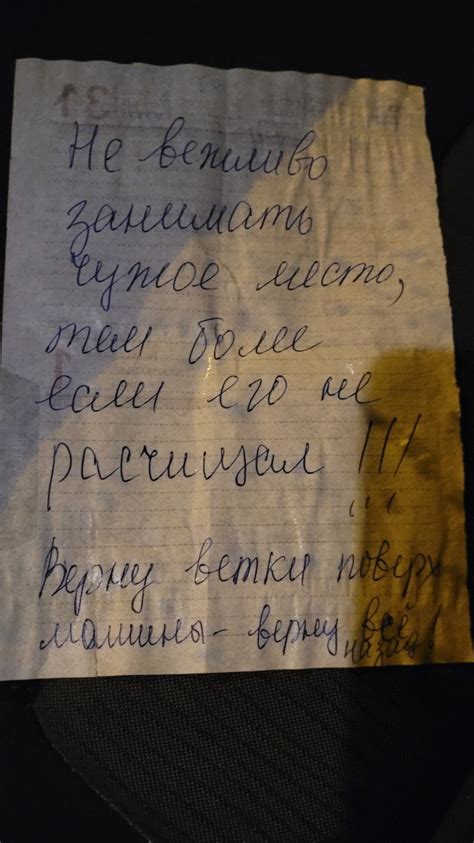 31
Не вежливо
занимать
чужое место,
тем более
если его не
расчищал !!!
Верну ветки поверх
машины - верну всё
назад!